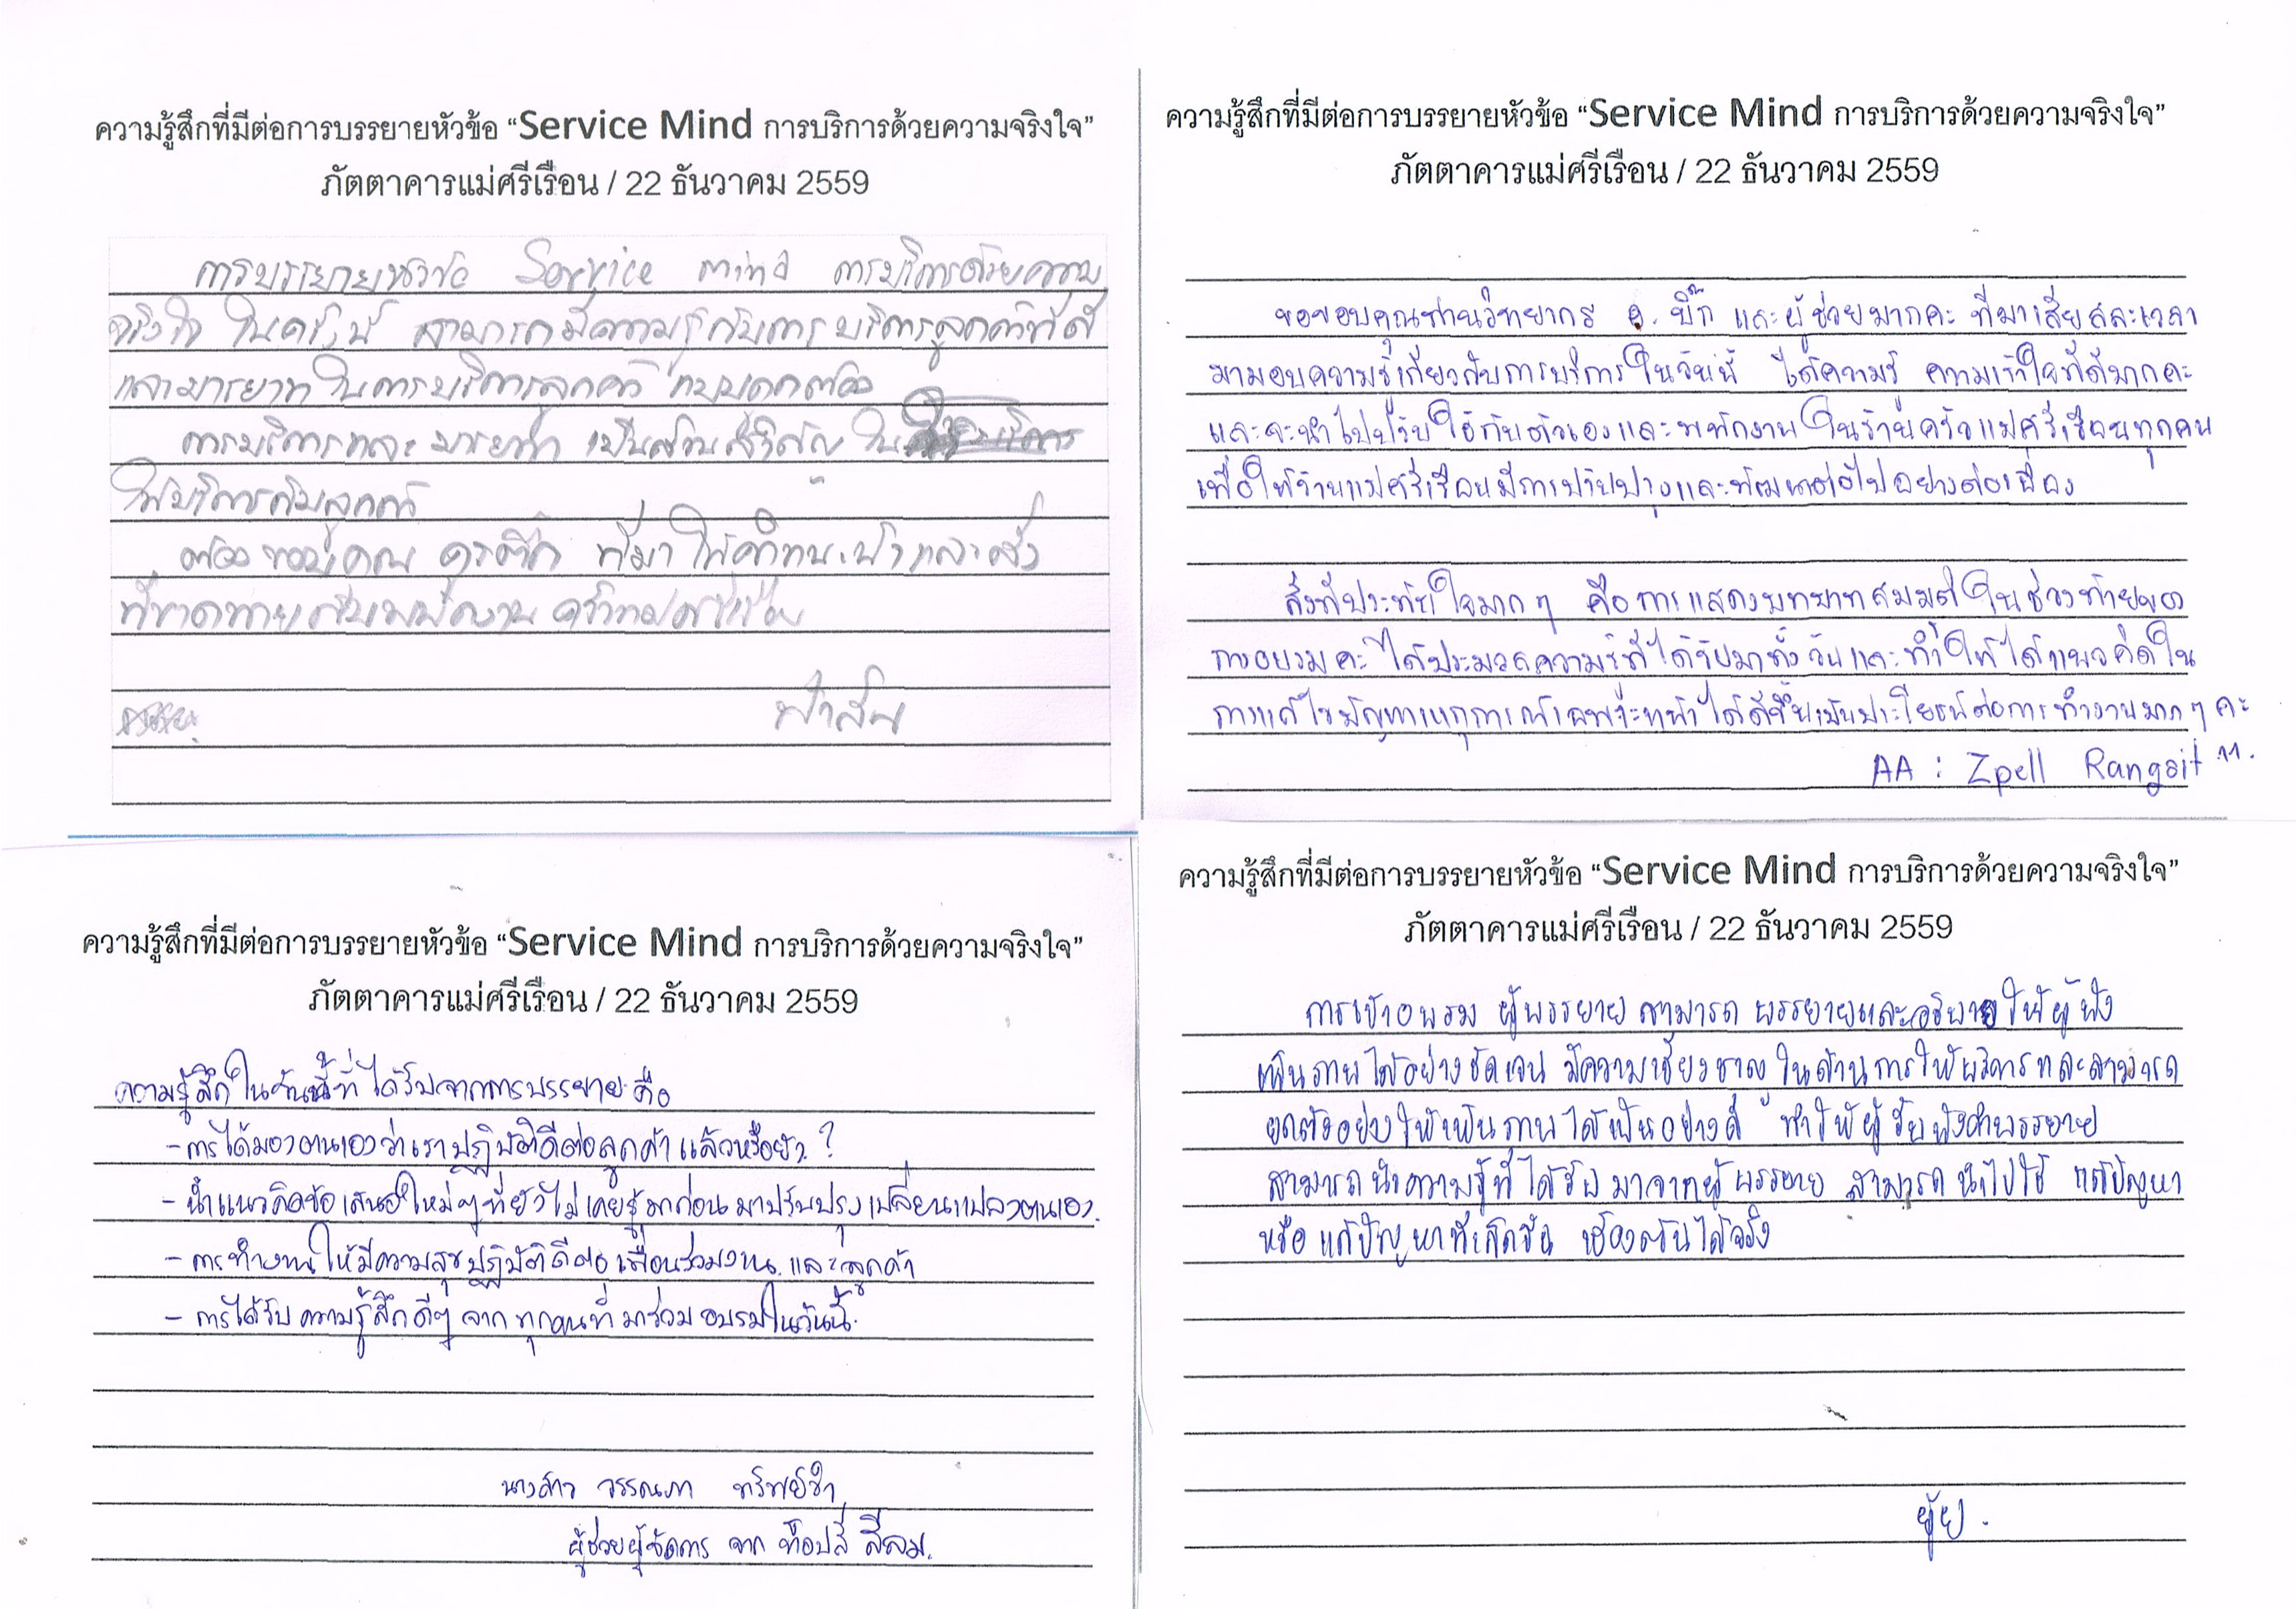 ความรู้สึกที่มีต่อการบรรยายหัวข้อ “Service Mind การบริการด้วยความจริงใจ”
ภัตตาคารแม่ศรีเรือน / 22 ธันวาคม 2559
การบรรยายหัวข้อ Service mind การบริการด้วยความ
จริงใจ ในครั้งนี้ สามารถมีความรู้กับการบริการลูกค้าที่ดี
และมารยาทในการบริการลูกค้า แบบถูกต้อง
การบริการและ มารยาท เป็นส่วนสำคัญ ใน
ให้บริการกับลูกค้า
ต้องขอบคุณ ที่มาให้คำแนะนำและสิ่ง
ที่ขาดหาย พนักงาน ครัวแม่ศรีเรือน
ความรู้สึกที่มีต่อการบรรยายหัวข้อ “Service Mind การบริการด้วยความจริงใจ”
ภัตตาคารแม่ศรีเรือน / 22 ธันวาคม 2559
ขอขอบคุณท่านวิทยากร อ. บิ๊ก และผู้ช่วยมากคะ ที่มาเสียสละเวลา
มามอบความรู้เกี่ยวกับการบริการในวันนี้ ได้ความรู้ ความเข้าใจที่ดีมากคะ
และจะนำไปปรับใช้กับตัวเองและพนักงานในร้านครัวแม่ศรีเรือนทุกคน
เพื่อให้ร้านแม่ศรีเรือนมีการปรับปรุงและพัฒนาต่อไปอย่างต่อเนื่อง
สิ่งที่ประทับใจมากๆ คือการแสดงบทบาทสมมติในช่วงท้ายของ
การอบรมคะ ได้ประมวลความรู้ที่ได้รับมาทั้งวันและทำให้ได้แนวคิดใน
การแก้ไขปัญหาเหตุการณ์เฉพาะหน้าได้ดีขึ้นเป็นประโยชน์ต่อการทำงานมากๆ คะ
AA : Zpell Rangsit
ความรู้สึกที่มีต่อการบรรยายหัวข้อ “Service Mind การบริการด้วยความจริงใจ”
ภัตตาคารแม่ศรีเรือน / 22 ธันวาคม 2559
ความรู้สึกในวันนี้ที่ได้รับจากการบรรยาย คือ
- การได้มองตนเองว่าเราปฏิบัติดีต่อลูกค้าแล้วหรือยัง ?
- นำแนวคิดข้อเสนอใหม่ๆที่ยังไม่เคยรู้มาก่อน มาปรับปรุงเปลี่ยนแปลงตนเอง.
- การทำงานให้มีความสุขปฏิบัติดีต่อเพื่อนร่วมงาน และลูกค้า
- การได้รับความรู้สึกดีๆ จากทุกคนที่มาร่วมอบรมในวันนี้.
นางสาว วรรณภา ทรัพย์ขำ
ผู้ช่วยผู้จัดการ จาก ท็อปส์ สีลม.
ความรู้สึกที่มีต่อการบรรยายหัวข้อ “Service Mind การบริการด้วยความจริงใจ”
ภัตตาคารแม่ศรีเรือน / 22 ธันวาคม 2559
การเข้าอบรม ผู้บรรยาย สามารถ บรรยายและอธิบายให้ผู้ฟัง
เห็นภาพได้อย่างชัดเจน มีความเชี่ยวชาญในด้านการให้บริการ และสามารถ
ยกตัวอย่างให้เห็นภาพได้เป็นอย่างดี ทำให้ผู้รับฟังคำบรรยาย
สามารถ นำความรู้ที่ได้รับมาจากผู้บรรยาย สามารถ นำไปใช้ แก้ปัญหา
หรือ แก้ปัญหาที่เกิดขึ้น เบื้องต้นได้จริง
ผู้ย.